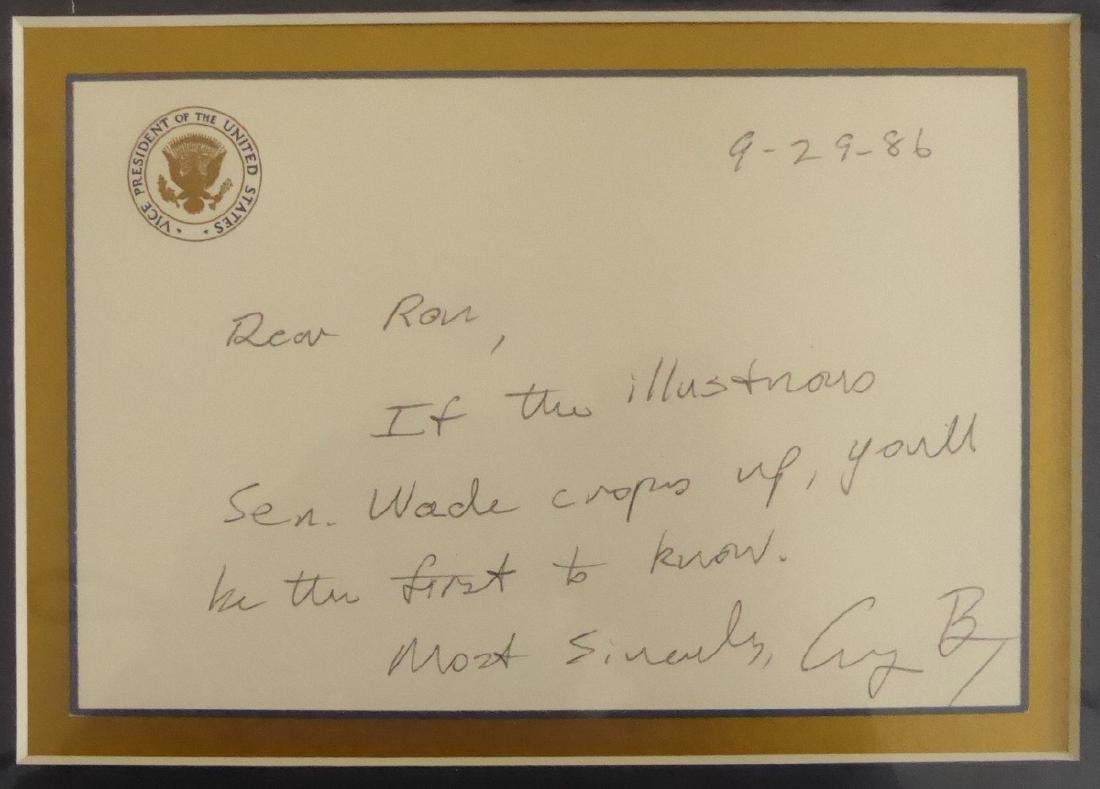 VICE PRESIDENT OF THE UNITED STATES
9-29-86
Dear Ron,
If the illustrious
Sen. Wade crops up, you'll
be the first to know.
Most Sincerely, G B